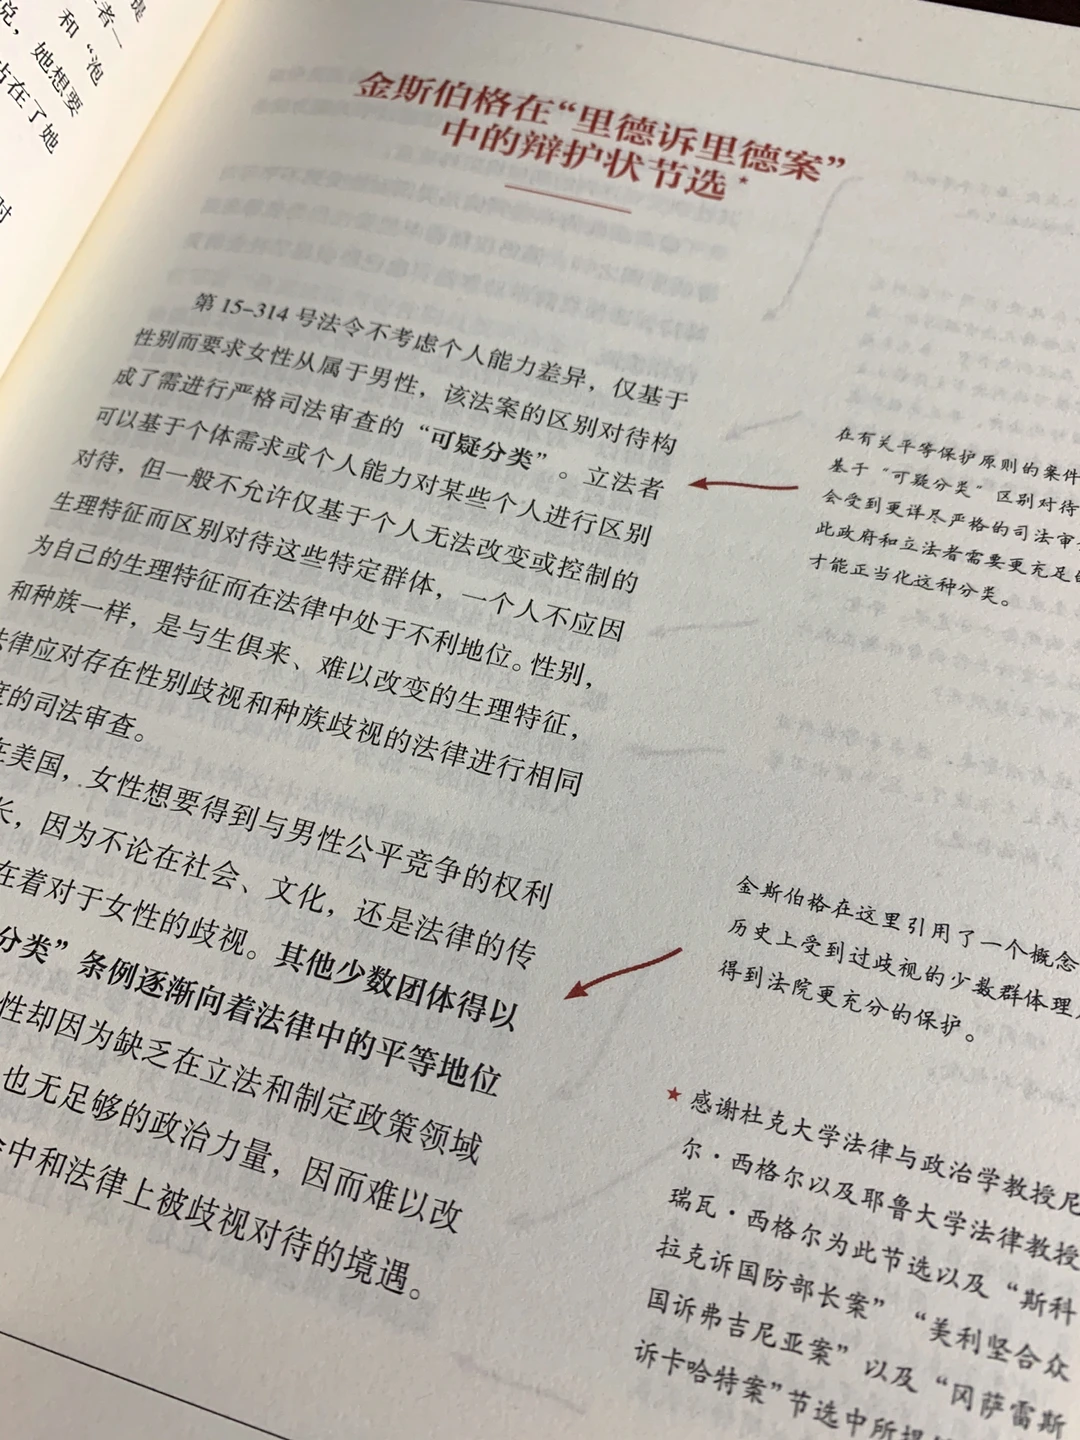 提
者一
和“泡
说，她想要
站在了她
时
金斯伯格在“里德诉里德案”
中的辩护状节选★
第15-314号法令不考虑个人能力差异，仅基于
性别而要求女性从属于男性，该法案的区别对待构
成了需进行严格司法审查的“可疑分类”。立法者
可以基于个体需求或个人能力对某些个人进行区别
对待，但一般不允许仅基于个人无法改变或控制的
生理特征而区别对待这些特定群体，一个人不应因
为自己的生理特征而在法律中处于不利地位。性别，
和种族一样，是与生俱来、难以改变的生理特征，
法律应对存在性别歧视和种族歧视的法律进行相同
度的司法审查。
在美国，女性想要得到与男性公平竞争的权利
长，因为不论在社会、文化，还是法律的传
在着对于女性的歧视。其他少数团体得以
分类”条例逐渐向着法律中的平等地位
性却因为缺乏在立法和制定政策领域
也无足够的政治力量，因而难以改
中和法律上被歧视对待的境遇。
在有关平等保护原则的案件
基于“可疑分类”区别对待
会受到更详尽严格的司法审
此政府和立法者需要更充足的
才能正当化这种分类。
金斯伯格在这里引用了一个概念
历史上受到过歧视的少数群体理
得到法院更充分的保护。
★ 感谢杜克大学法律与政治学教授尼
尔·西格尔以及耶鲁大学法律教授
瑞瓦·西格尔为此节选以及“斯科
拉克诉国防部长案”“美利坚合众
国诉弗吉尼亚案”以及“冈萨雷斯
诉卡哈特案”节选中所提